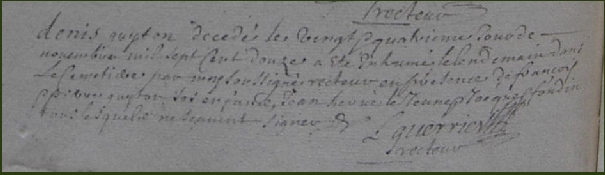 recteur
denis guyton decedé le vingt quatrieme Jour de
novembre mil sept Cent douze a eté Inhumé le lendemain dans
le Cemetiere par moy soussigné recteur en presence de françois
guyton ses enfands, Jean le Jeune, Jacques
tous lesquels ne scavent signer
L guerrier
recteur